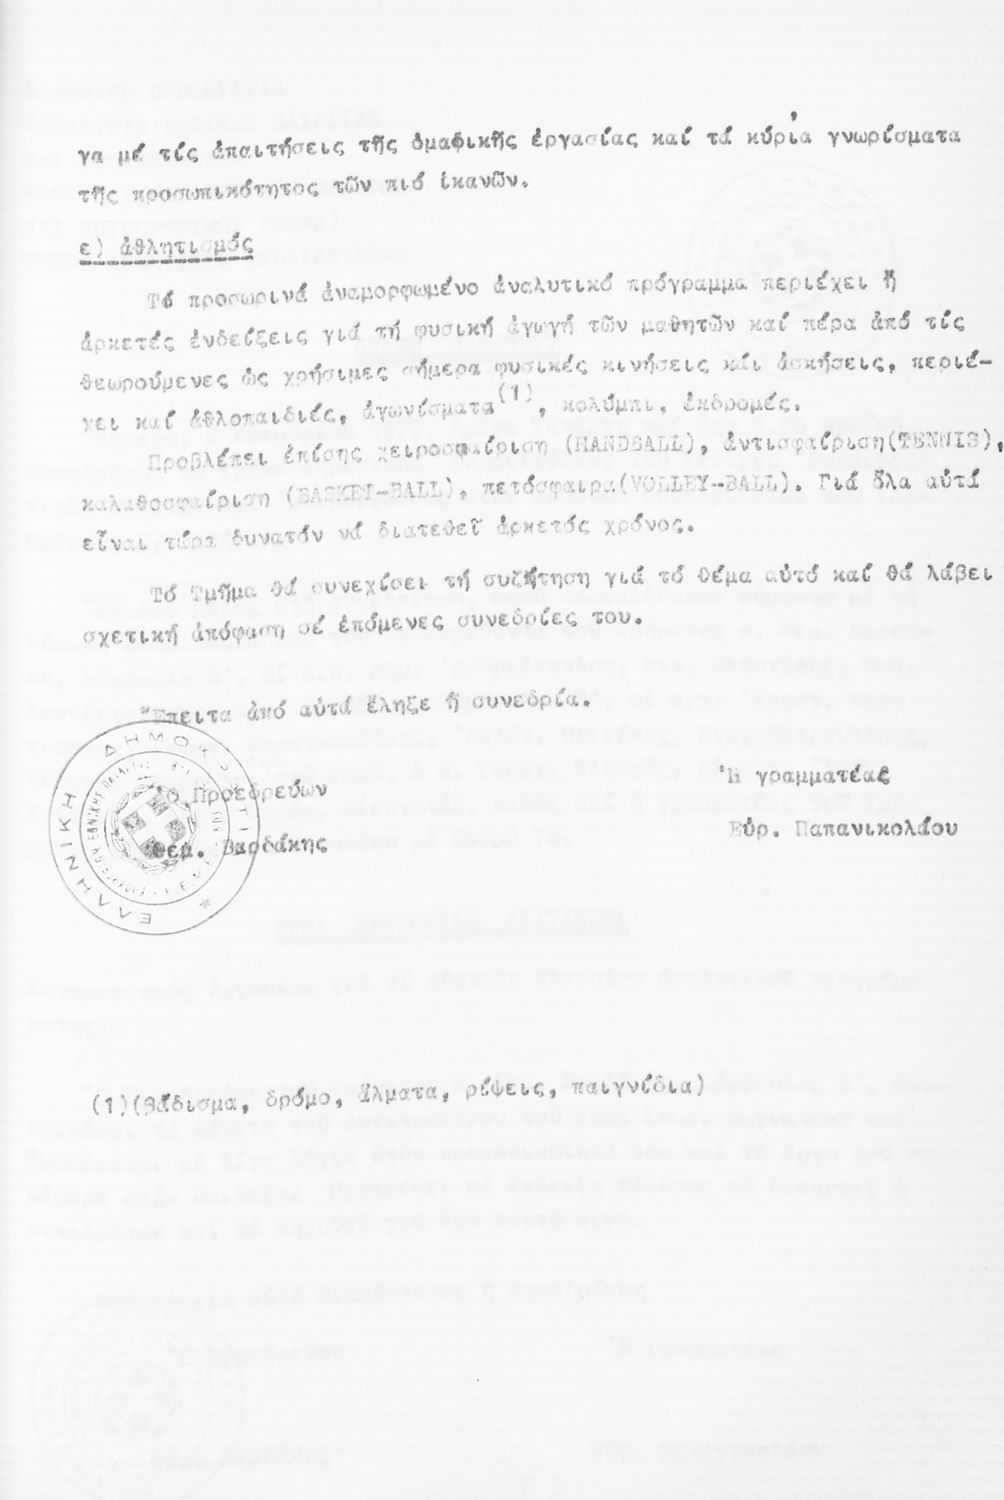 γα μέ τίς ἀπαιτήσεις τῆς ὁμαδικῆς ἐργασίας καί τά κύρια γνωρίσματα
τῆς προσωπικότητος τῶν πιό ἱκανῶν.
ε) ἀθλητισμός
Τό προσωρινά ἀναμορφωμένο ἀναλυτικό πρόγραμμα περιέχει ἤ
ἀρκετές ἐνδείξεις γιά τή φυσική ἀγωγή τῶν μαθητῶν καί πέρα ἀπό τίς
θεωρούμενες ὡς χρήσιμες σήμερα φυσικές κινήσεις καί ἀσκήσεις, περιέ-
χει καί ἀθλοπαιδιές, ἀγωνίσματα(1), κολύμπι, ἐκδρομές.
Προβλέπει ἐπίσης χειροσφαίριση (HANDBALL), ἀντισφαίριση(TENNIS),
καλαθοσφαίριση (BASKET-BALL), πετόσφαιρα(VOLLEY-BALL). Γιά ὅλα αὐτά
εἶναι τώρα δυνατόν νά διατεθεῖ ἀρκετός χρόνος.
Τό Τμῆμα θά συνεχίσει τή συζήτηση γιά τό θέμα αὐτό καί θά λάβει
σχετική ἀπόφαση σέ ἑπόμενες συνεδρίες του.
Ἔπειτα ἀπό αὐτά ἔληξε ἡ συνεδρία.
Ὁ Προεδρεύων
Ἡ γραμματέας
Θεμ. Βαρδάκης
Εὐρ. Παπανικολάου
ΕΛΛΗΝΙΚΗ ΔΗΜΟΚΡΑΤΙΑ
(1)(Βάδισμα, δρόμο, ἅλματα, ρίψεις, παιγνίδια)